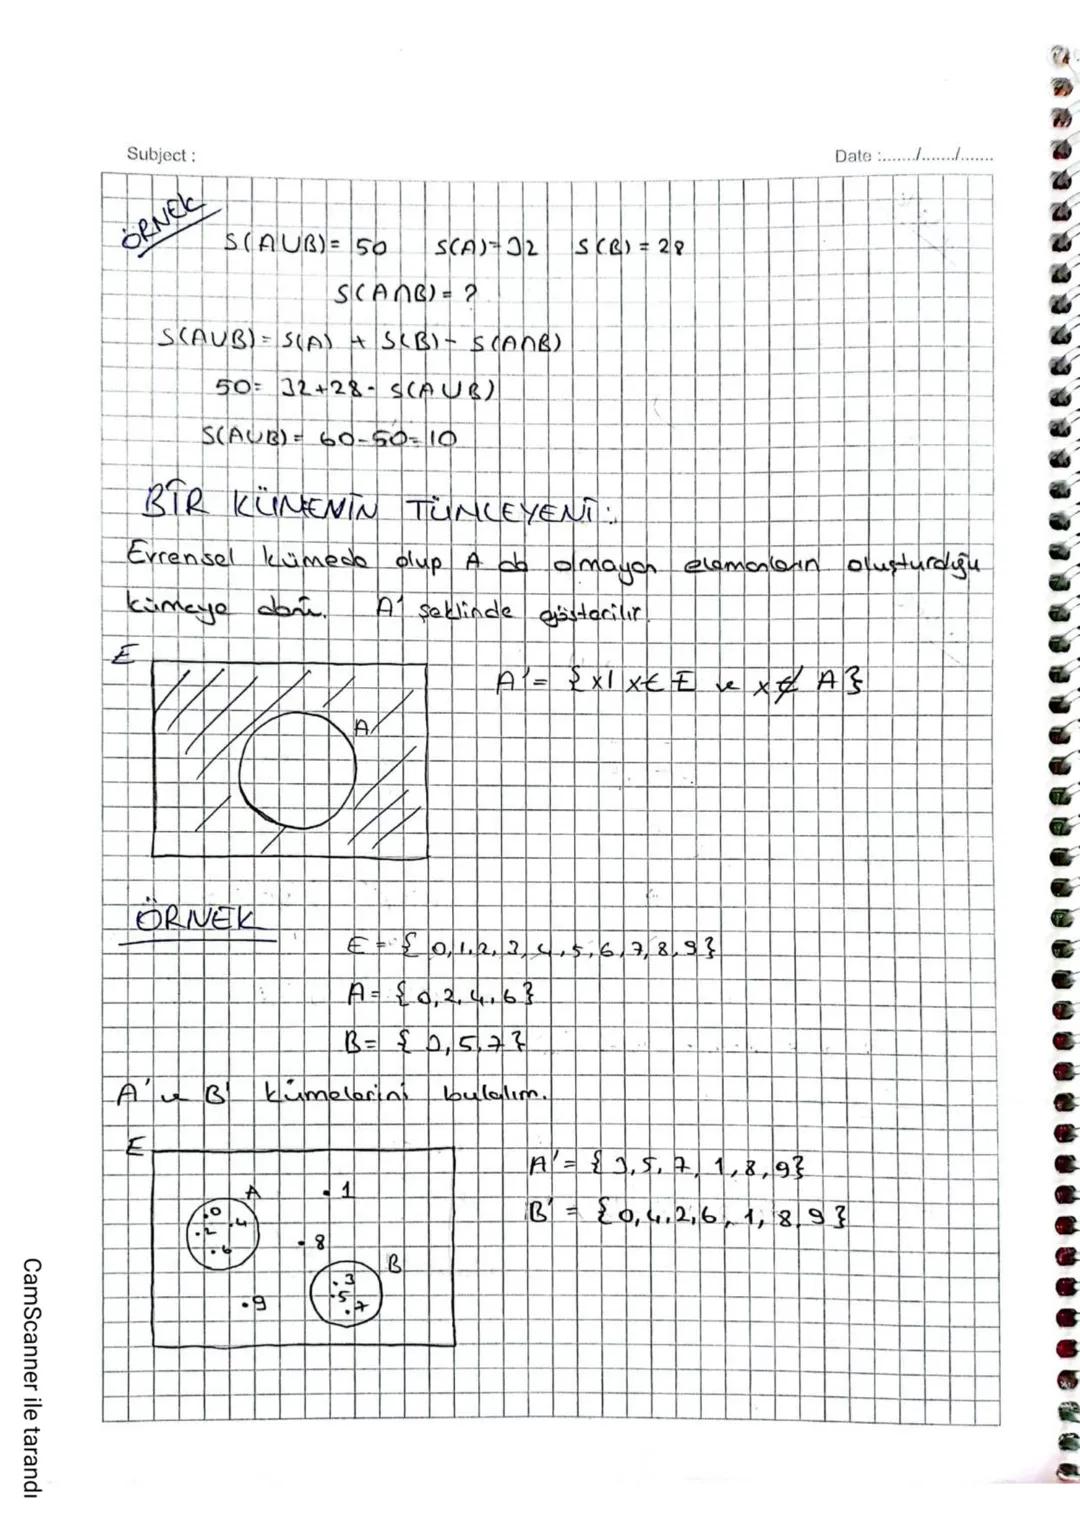 Subject :
Date :......./......./.......
ÖRNEK
S(A∪B)= 50 S(A)=32 S(B)=28
S(A∩B)= ?
S(A∪B)= S(A) + S(B)- S(A∩B)
50= 32+28- S(A∪B)
S(A∪B)= 60-50=10
BİR KÜMENİN TÜMLEYENİ:
Evrensel kümede olup A da olmayan elemanların oluşturduğu
kümeye denir. A' şeklinde gösterilir.
E
A'= {x| x∈ E ve x∉ A}
A
ÖRNEK
E= { 0,1,2,3,4,5,6,7,8,9}
A= {0,2,4,6}
B= { 3,5,7}
A' ve B' kümelerini bulalım.
E
A'= { 3,5,7,1,8,9}
A
.1
B' = {0,4,2,6,1,8,9}
.0
.2 .4
.6
.8
B
.3
.5
.7
.9
CamScanner ile tarandı